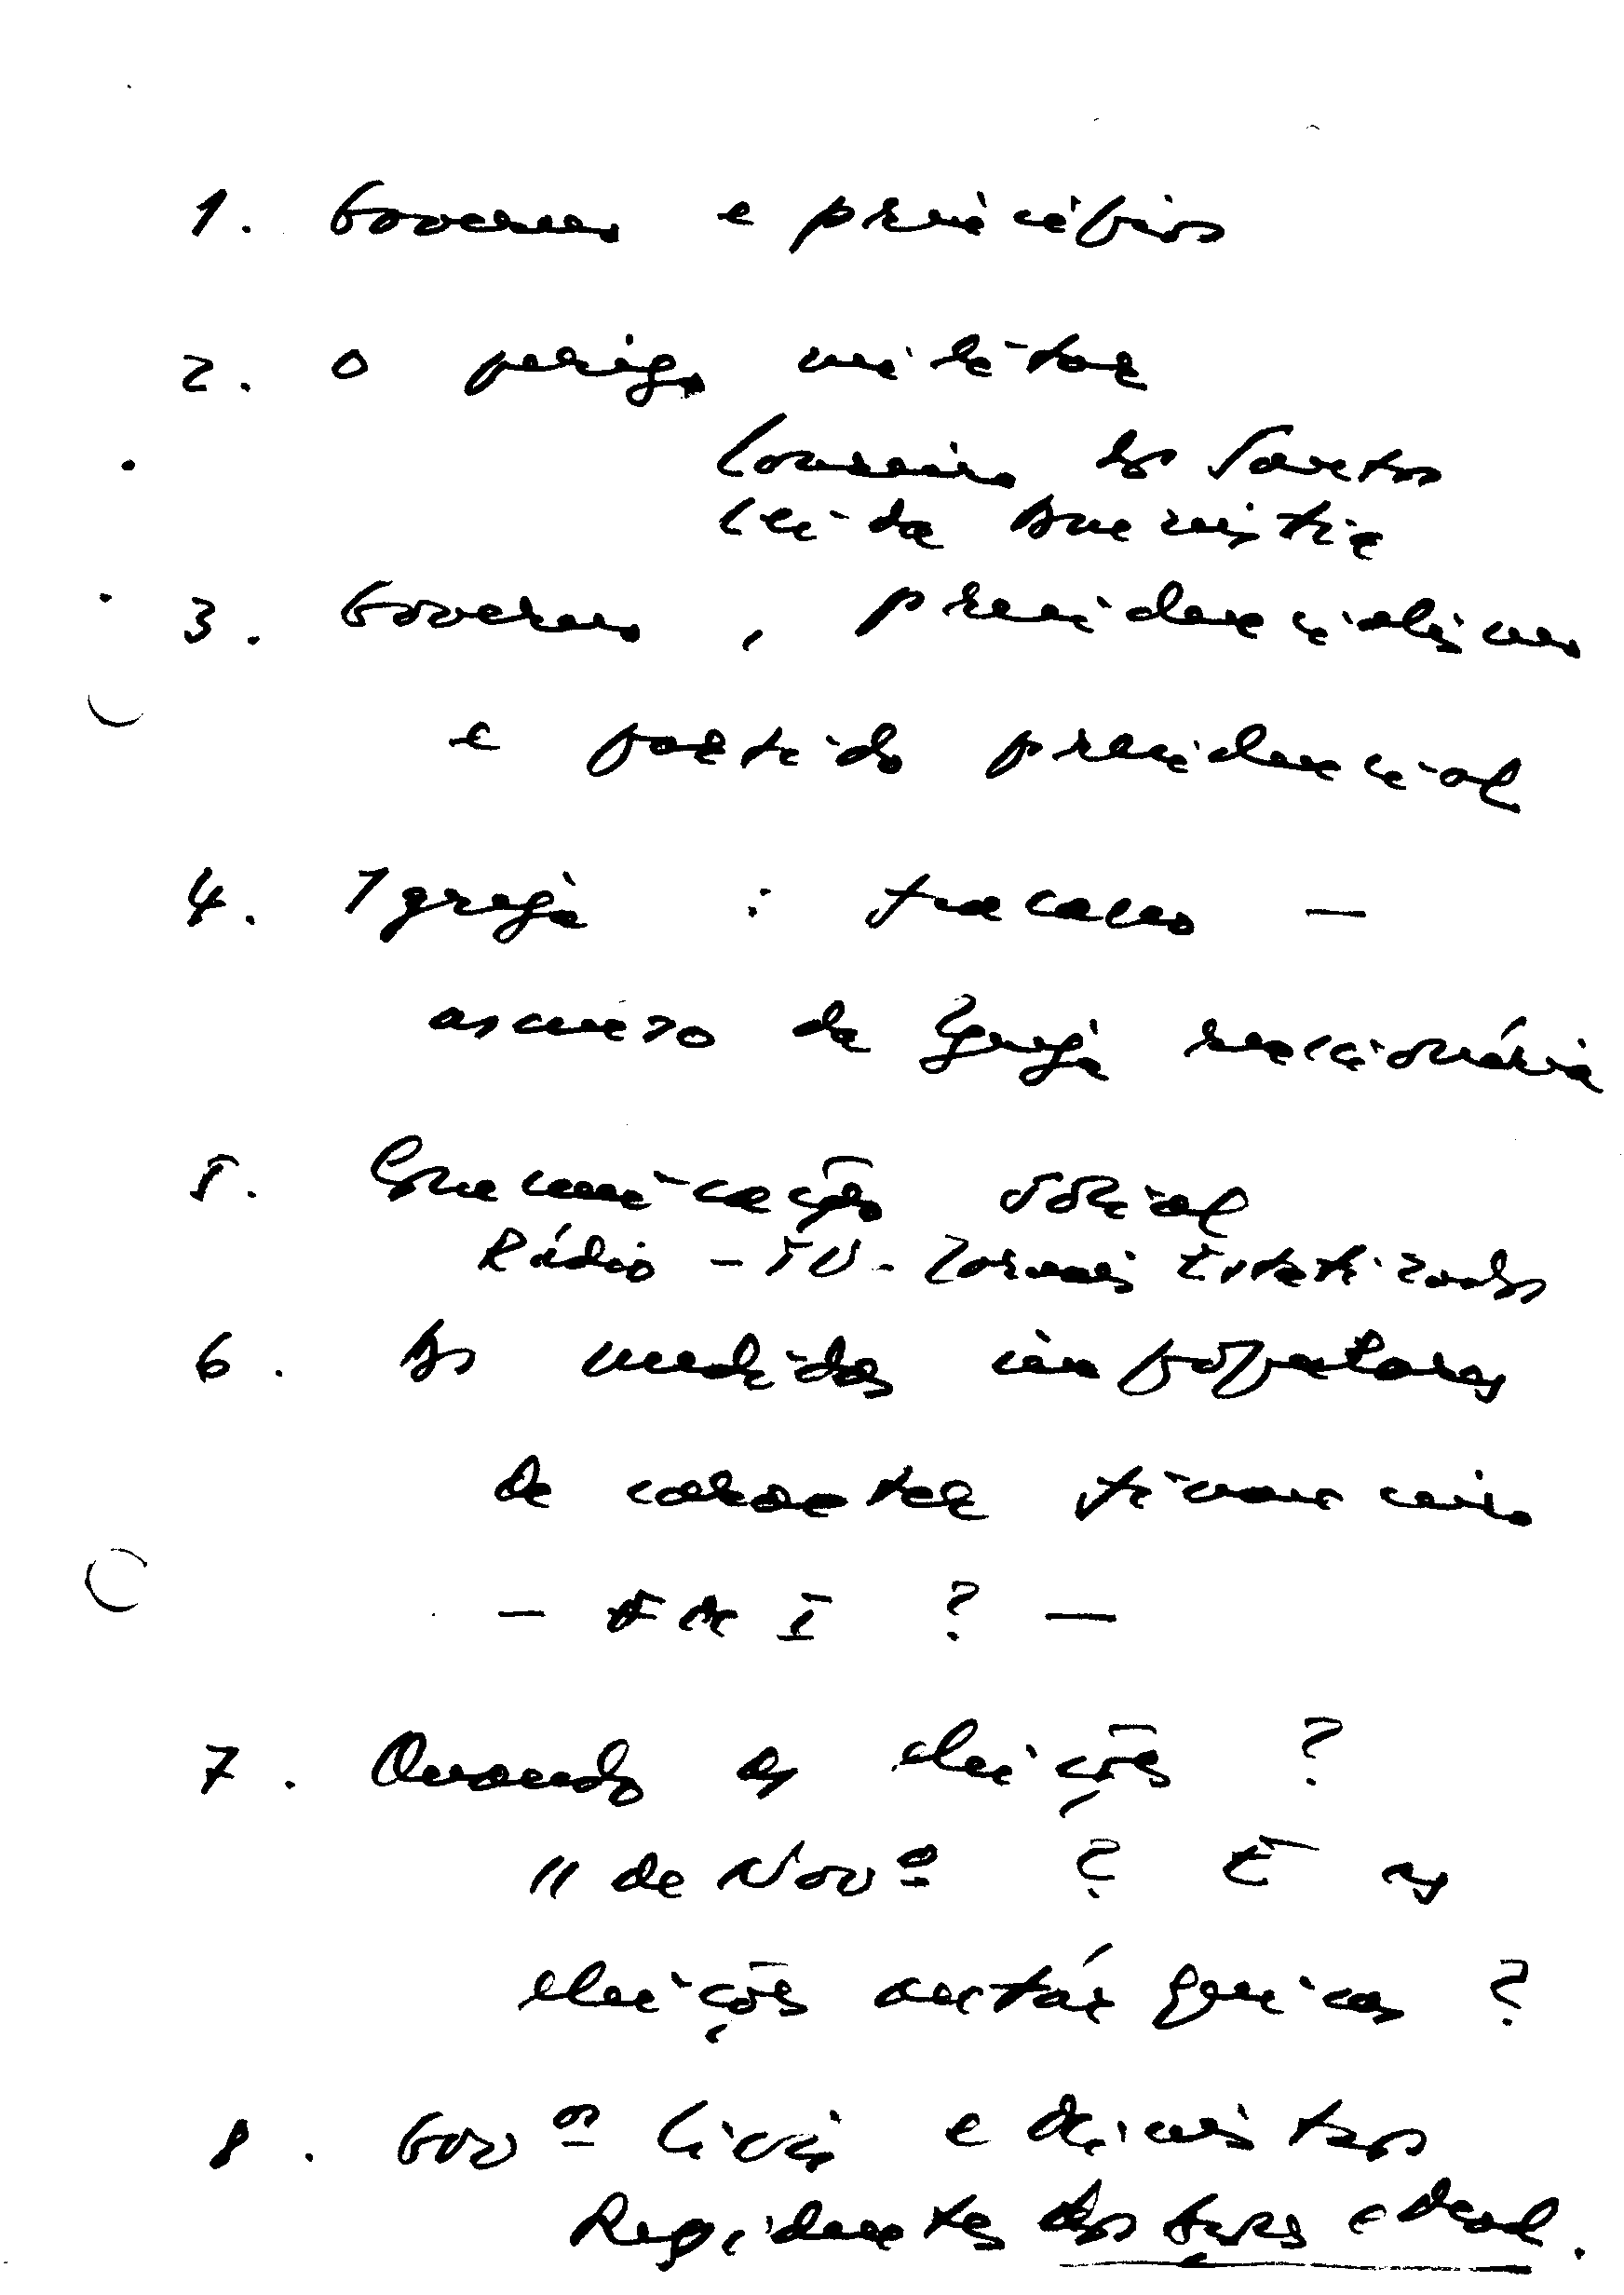 1. Governo e princípios
2. O perigo militar
Loureiro dos Santos
Lei da Amnistia
3. Governo, presidencialismo
e partido presidencial
4. Igreja : fracasso –
ascenso da Igreja reaccionária
5. Comunicação social
Rádio – TV – Jornais Estatizados
6. As medidas impopulares
de carácter financeiro
– FMI ? –
7. Quando as eleições ?
11 de Novº ? E as
eleições autárquicas ?
8. Govºs Civis e Ministros
Residentes dos Açores